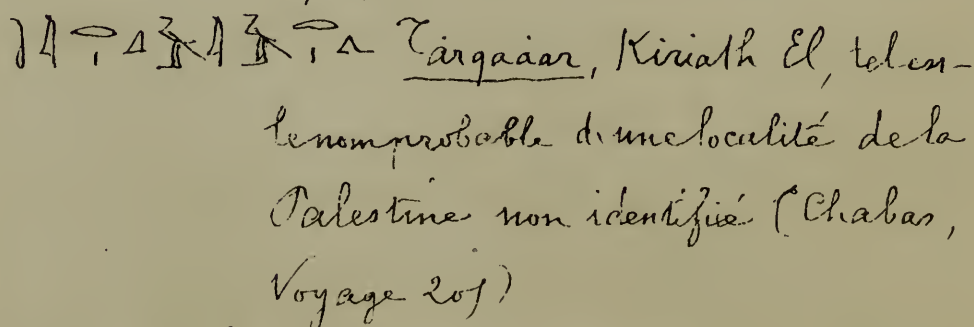 Tārqāāar, Kiriath El, tel en-
le nom probable d'une localité de la
Palestine non identifié (Chabas,
Voyage 201)